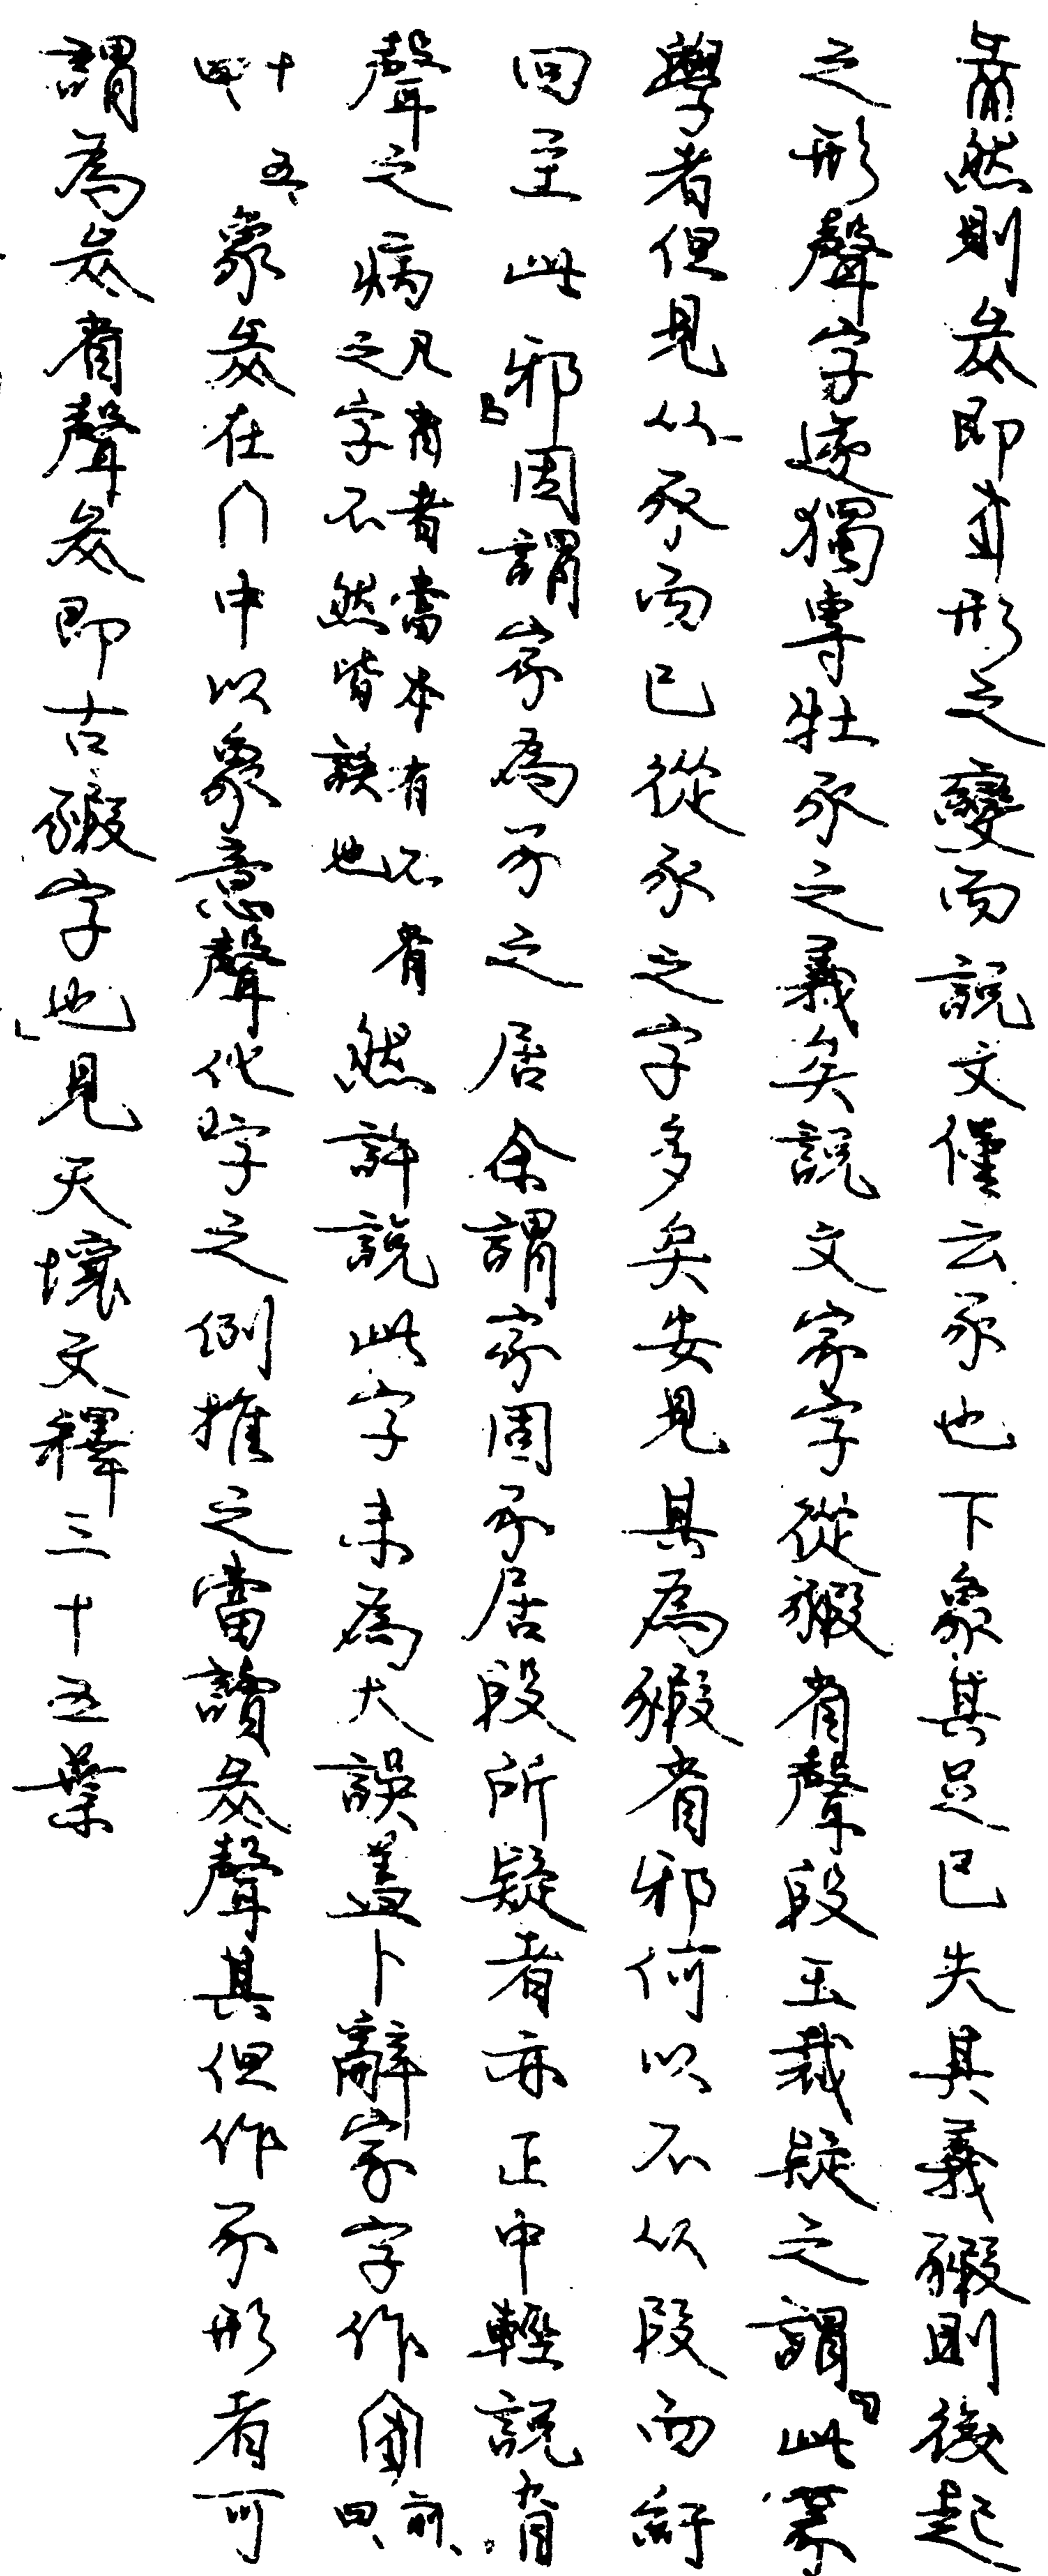 然則即形之變而說文僅云豕也下象其足已失其義豭則後起
之形聲字遂獨專牡豕之義矣說文家字從豭省聲段玉裁疑之謂「此篆
學者但見从豕而已從豕之字多矣安見其為豭省邪何以不从叚而紆
回至此邪」因謂家為豕之居余謂家固豕居段所疑者亦正中輕說省
聲之病凡省者當本有不省之字不然皆誤也然許說此字未為大誤蓋卜辭家字作前、四、
十五、四、象在宀中以象意聲化字之例推之當讀聲其但作豕形者可
謂為省聲即古豭字也」見天壤文釋三十五葉